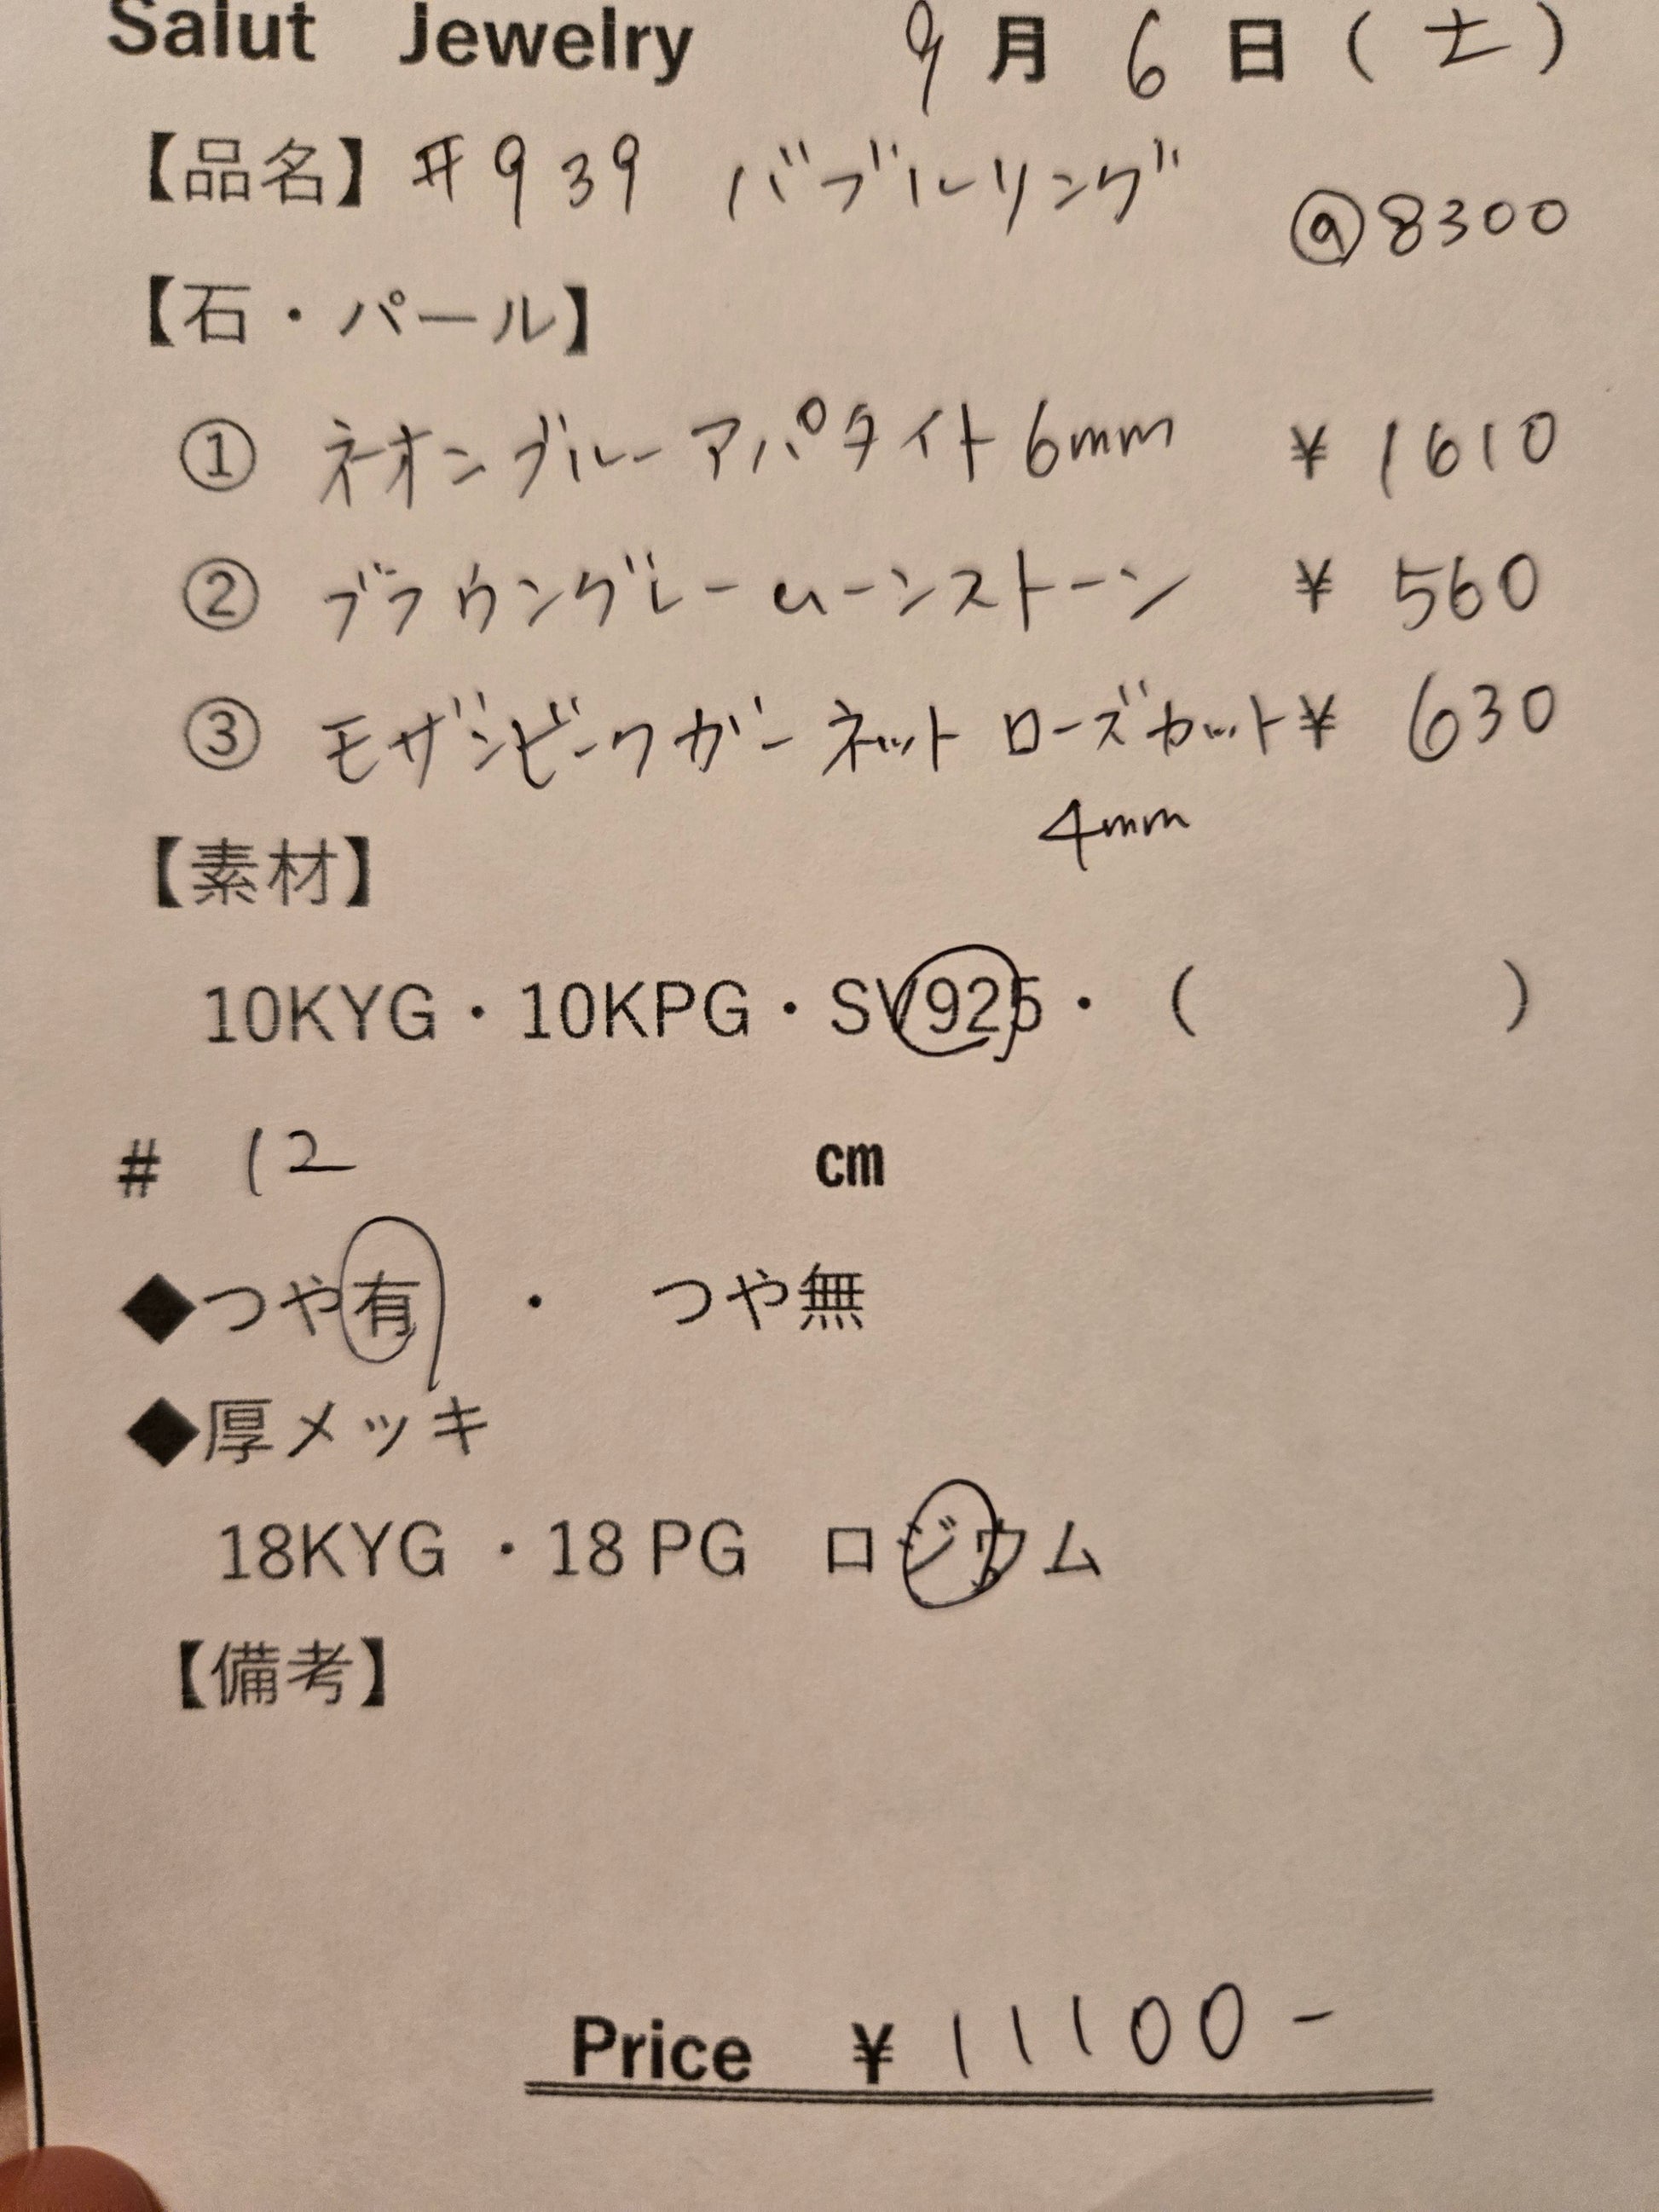 Salut Jewelry 9月6日(土)
【品名】#939 バブルリング
@8300
【石・パール】
① ネオンブルーアパタイト6mm ¥1610
② ブラウングレームーンストーン ¥560
③ モザンビークガーネット ローズカット ¥630
4mm
【素材】
10KYG・10KPG・SV925・( )
# 12 cm
◆つや有 ・ つや無
◆厚メッキ
18KYG ・18 PG ロジウム
【備考】
Price ¥11100-